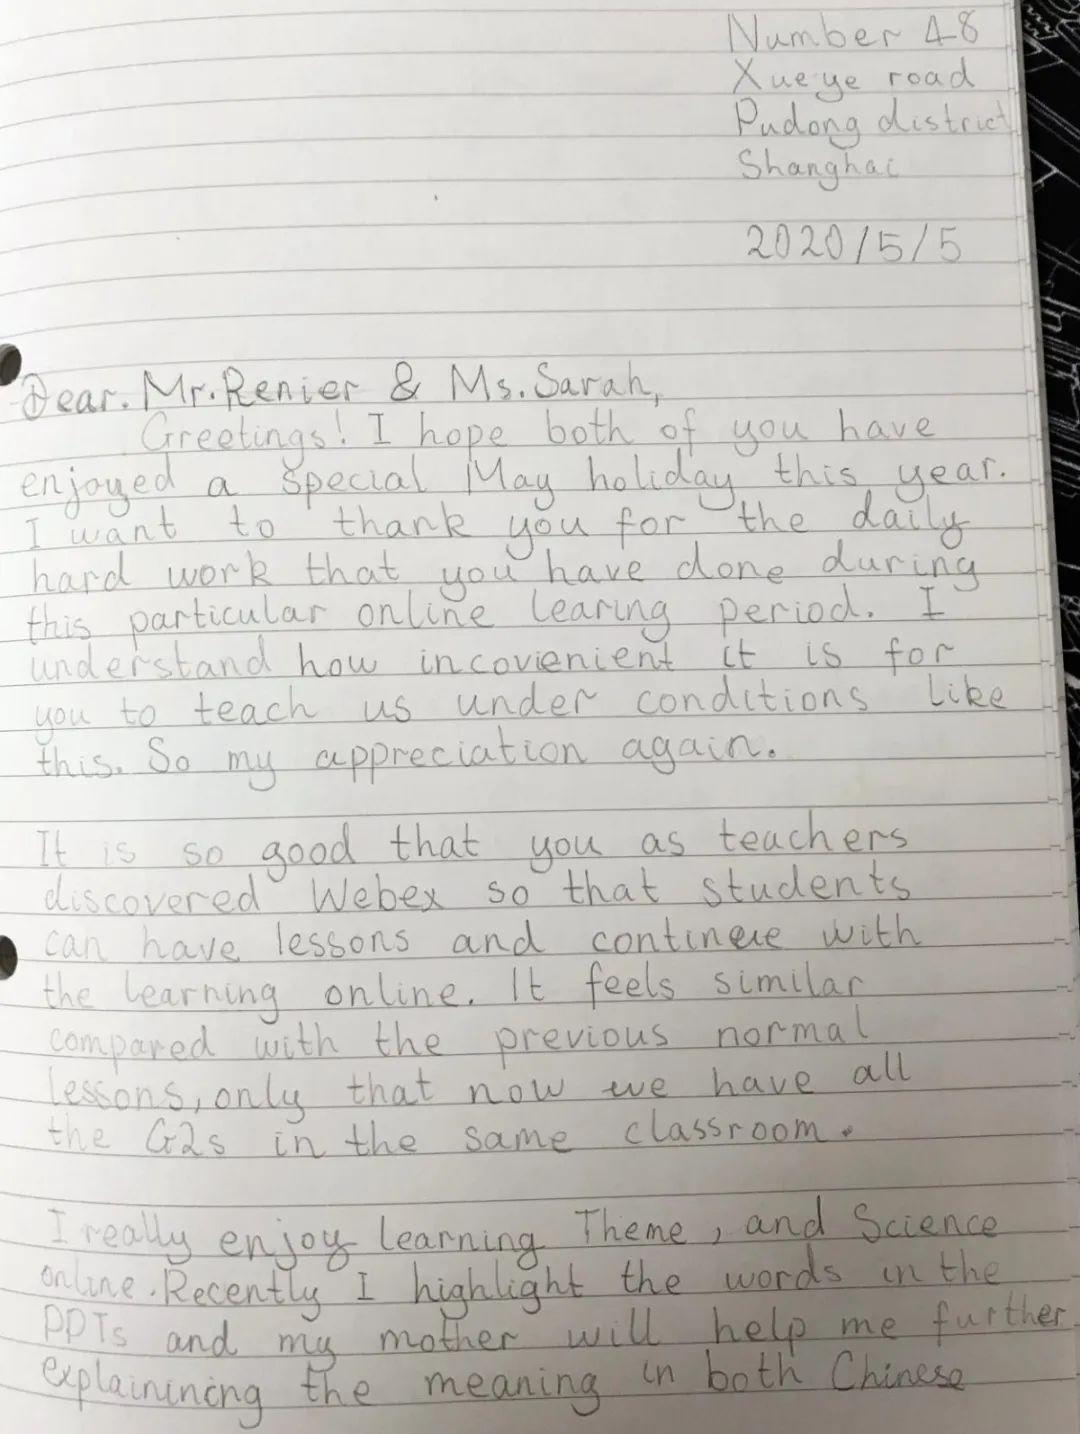 Number 48
Xueye road
Pudong district
Shanghai
2020/5/5
Dear. Mr. Renier & Ms. Sarah,
Greetings! I hope both of you have
enjoyed a special May holiday this year.
I want to thank you for the daily
hard work that you have done during
this particular online learing period. I
understand how incovienient it is for
you to teach us under conditions like
this. So my appreciation again.
It is so good that you as teachers
discovered Webex so that students
can have lessons and contineue with
the learning online. It feels similar
compared with the previous normal
lessons, only that now we have all
the G2s in the same classroom.
I really enjoy learning Theme, and Science
online. Recently I highlight the words in the
PPTs and my mother will help me further
explainining the meaning in both Chinese